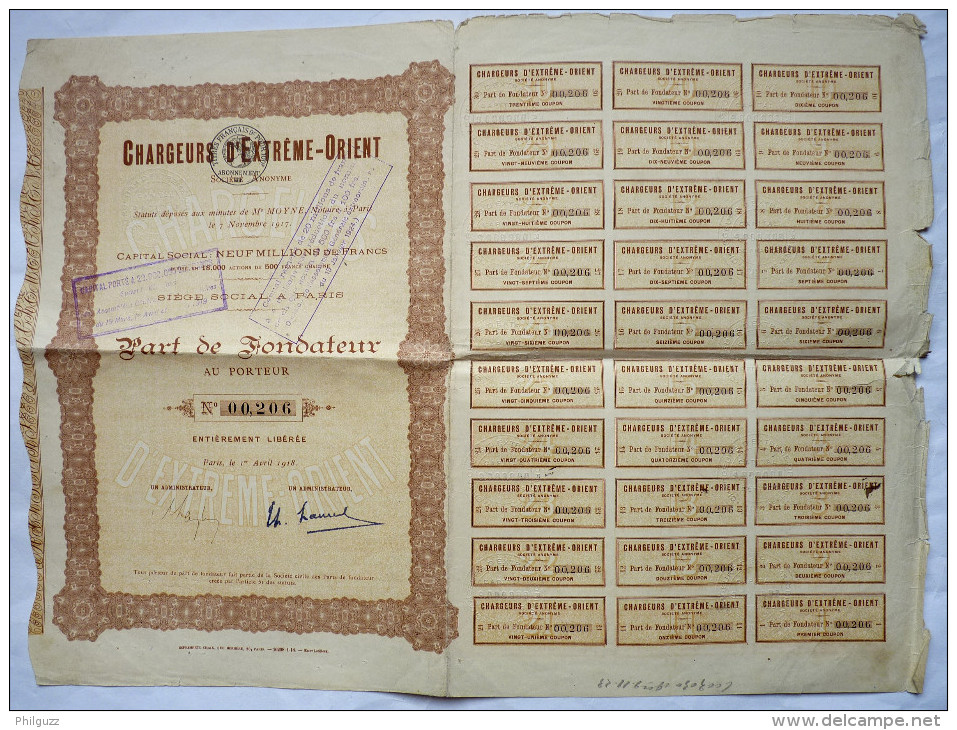 CHARGEURS D'EXTRÊME-ORIENT
SOCIÉTÉ ANONYME
ABONNEMENT
Statuts déposés aux minutes de Me MOYNE, Notaire à Paris
le 7 Novembre 1917.
CAPITAL SOCIAL: NEUF MILLIONS DE FRANCS
18.000 ACTIONS DE 500 FRANCS CHACUNE
CAPITAL PORTÉ A
SIÈGE SOCIAL A PARIS
Part de Fondateur
AU PORTEUR
No 00,206
ENTIÈREMENT LIBÉRÉE
Paris, le 1er Avril 1918.
UN ADMINISTRATEUR, UN ADMINISTRATEUR,
D'EXTRÊME-ORIENT
Tout porteur de part de fondateur fait partie de la Société civile des Parts de fondateur
créée par l'article 51 des statuts.
CHARGEURS D'EXTRÊME-ORIENT
SOCIÉTÉ ANONYME
Part de Fondateur No 00,206
TRENTIÈME COUPON
CHARGEURS D'EXTRÊME-ORIENT
SOCIÉTÉ ANONYME
Part de Fondateur No 00,206
VINGTIÈME COUPON
CHARGEURS D'EXTRÊME-ORIENT
SOCIÉTÉ ANONYME
Part de Fondateur No 00,206
DIXIÈME COUPON
CHARGEURS D'EXTRÊME-ORIENT
SOCIÉTÉ ANONYME
Part de Fondateur No 00,206
VINGT-NEUVIÈME COUPON
CHARGEURS D'EXTRÊME-ORIENT
SOCIÉTÉ ANONYME
Part de Fondateur No 00,206
DIX-NEUVIÈME COUPON
CHARGEURS D'EXTRÊME-ORIENT
SOCIÉTÉ ANONYME
Part de Fondateur No 00,206
NEUVIÈME COUPON
CHARGEURS D'EXTRÊME-ORIENT
SOCIÉTÉ ANONYME
Part de Fondateur No 00,206
VINGT-HUITIÈME COUPON
CHARGEURS D'EXTRÊME-ORIENT
SOCIÉTÉ ANONYME
Part de Fondateur No 00,206
DIX-HUITIÈME COUPON
CHARGEURS D'EXTRÊME-ORIENT
SOCIÉTÉ ANONYME
Part de Fondateur No 00,206
HUITIÈME COUPON
CHARGEURS D'EXTRÊME-ORIENT
SOCIÉTÉ ANONYME
Part de Fondateur No 00,206
VINGT-SEPTIÈME COUPON
CHARGEURS D'EXTRÊME-ORIENT
SOCIÉTÉ ANONYME
Part de Fondateur No 00,206
DIX-SEPTIÈME COUPON
CHARGEURS D'EXTRÊME-ORIENT
SOCIÉTÉ ANONYME
Part de Fondateur No 00,206
SEPTIÈME COUPON
CHARGEURS D'EXTRÊME-ORIENT
SOCIÉTÉ ANONYME
Part de Fondateur No 00,206
VINGT-SIXIÈME COUPON
CHARGEURS D'EXTRÊME-ORIENT
SOCIÉTÉ ANONYME
Part de Fondateur No 00,206
SEIZIÈME COUPON
CHARGEURS D'EXTRÊME-ORIENT
SOCIÉTÉ ANONYME
Part de Fondateur No 00,206
SIXIÈME COUPON
CHARGEURS D'EXTRÊME-ORIENT
SOCIÉTÉ ANONYME
Part de Fondateur No 00,206
VINGT-CINQUIÈME COUPON
CHARGEURS D'EXTRÊME-ORIENT
SOCIÉTÉ ANONYME
Part de Fondateur No 00,206
QUINZIÈME COUPON
CHARGEURS D'EXTRÊME-ORIENT
SOCIÉTÉ ANONYME
Part de Fondateur No 00,206
CINQUIÈME COUPON
CHARGEURS D'EXTRÊME-ORIENT
SOCIÉTÉ ANONYME
Part de Fondateur No 00,206
VINGT-QUATRIÈME COUPON
CHARGEURS D'EXTRÊME-ORIENT
SOCIÉTÉ ANONYME
Part de Fondateur No 00,206
QUATORZIÈME COUPON
CHARGEURS D'EXTRÊME-ORIENT
SOCIÉTÉ ANONYME
Part de Fondateur No 00,206
QUATRIÈME COUPON
CHARGEURS D'EXTRÊME-ORIENT
SOCIÉTÉ ANONYME
Part de Fondateur No 00,206
VINGT-TROISIÈME COUPON
CHARGEURS D'EXTRÊME-ORIENT
SOCIÉTÉ ANONYME
Part de Fondateur No 00,206
TREIZIÈME COUPON
CHARGEURS D'EXTRÊME-ORIENT
SOCIÉTÉ ANONYME
Part de Fondateur No 00,206
TROISIÈME COUPON
CHARGEURS D'EXTRÊME-ORIENT
SOCIÉTÉ ANONYME
Part de Fondateur No 00,206
VINGT-DEUXIÈME COUPON
CHARGEURS D'EXTRÊME-ORIENT
SOCIÉTÉ ANONYME
Part de Fondateur No 00,206
DOUZIÈME COUPON
CHARGEURS D'EXTRÊME-ORIENT
SOCIÉTÉ ANONYME
Part de Fondateur No 00,206
DEUXIÈME COUPON
CHARGEURS D'EXTRÊME-ORIENT
SOCIÉTÉ ANONYME
Part de Fondateur No 00,206
VINGT-UNIÈME COUPON
CHARGEURS D'EXTRÊME-ORIENT
SOCIÉTÉ ANONYME
Part de Fondateur No 00,206
ONZIÈME COUPON
CHARGEURS D'EXTRÊME-ORIENT
SOCIÉTÉ ANONYME
Part de Fondateur No 00,206
PREMIER COUPON
Philguzz
delcampe.net